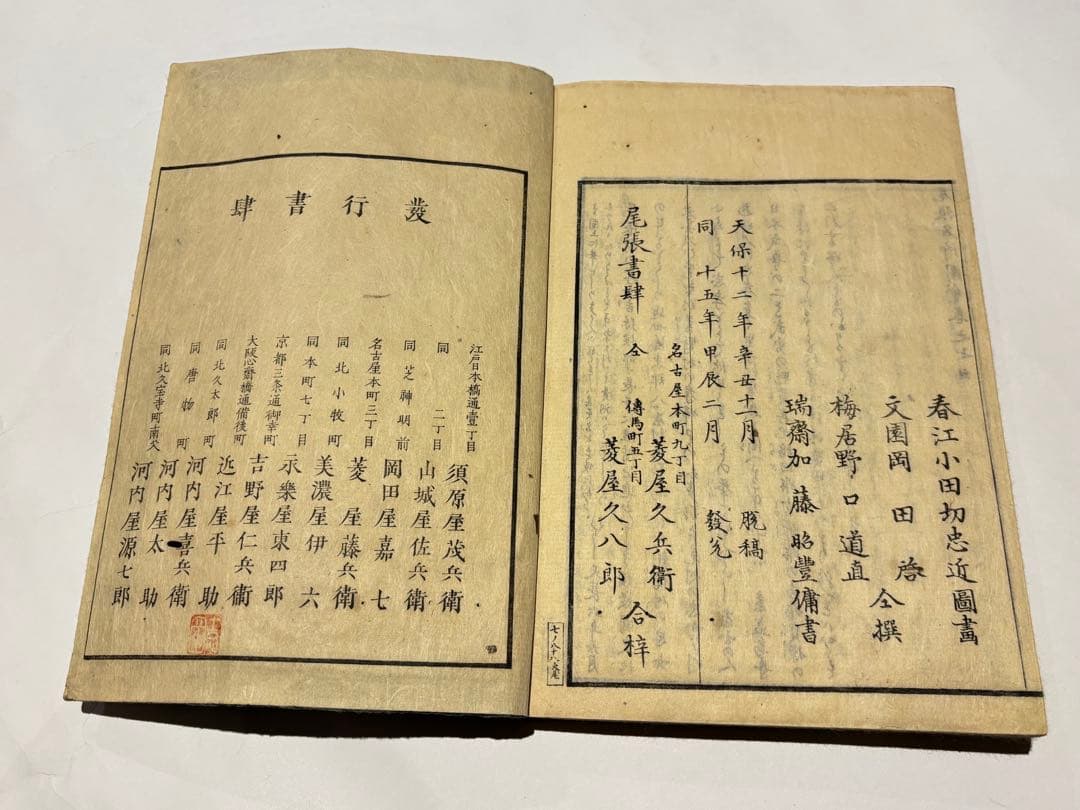 春江小田切忠近圖畫
文園岡田啓
梅居野口道直
仝撰
瑞齋加藤昭豐傭書
天保十二年辛丑十一月 脫稿
同 十五年甲辰二月 發兌
尾張書肆
名古屋本町九丁目
菱屋久兵衞
仝 傳馬町五丁目
菱屋久八郎
合梓
發行書肆
江戸日本橋通壹丁目 須原屋茂兵衞
同 二丁目 山城屋佐兵衞
同 芝神明前 岡田屋嘉七
名古屋本町三丁目 菱屋藤兵衞
同 北小牧町 美濃屋伊六
同 本町七丁目 永樂屋東四郎
京都三条通御幸町 吉野屋仁兵衞
大阪心齋橋通備後町 近江屋平助
同 北久太郎町 河内屋喜兵衞
同 唐物町 河内屋太助
同 北久宝寺町南尖 河内屋源七郎